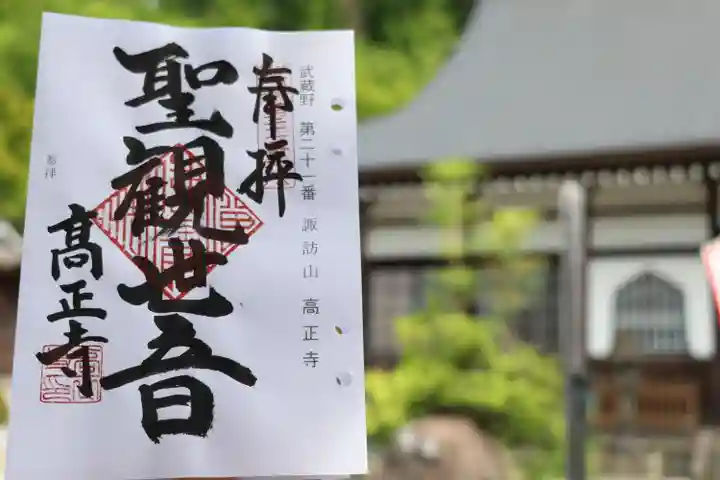 武蔵野 第二十一番 諏訪山 高正寺
奉拝
聖観世音
髙正寺
参拝